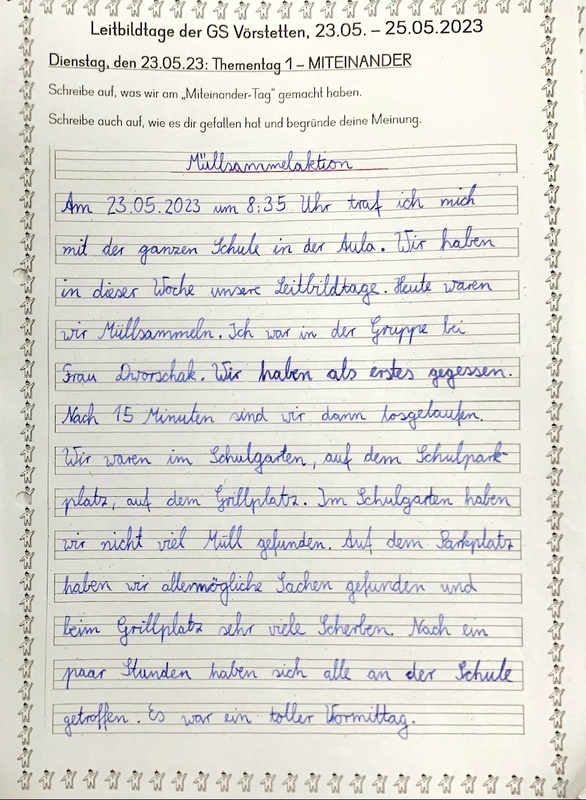 Leitbildtage der GS Vörstetten, 23.05. – 25.05.2023
Dienstag, den 23.05.23: Thementag 1 – MITEINANDER
Schreibe auf, was wir am „Miteinander-Tag" gemacht haben.
Schreibe auch auf, wie es dir gefallen hat und begründe deine Meinung.
Müllsammelaktion
Am 23.05.2023 um 8:35 Uhr traf ich mich
mit der ganzen Schule in der Aula. Wir haben
in dieser Woche unsere Leitbildtage. Heute waren
wir Müllsammeln. Ich war in der Gruppe bei
Frau Dworschak. Wir haben als erstes gegessen.
Nach 15 Minuten sind wir dann losgelaufen.
Wir waren im Schulgarten, auf dem Schulpark-
platz, auf dem Grillplatz. Im Schulgarten haben
wir nicht viel Müll gefunden. Auf dem Parkplatz
haben wir allermögliche Sachen gefunden und
beim Grillplatz sehr viele Scherben. Nach ein
paar Stunden haben sich alle an der Schule
getroffen. Es war ein toller Vormittag.